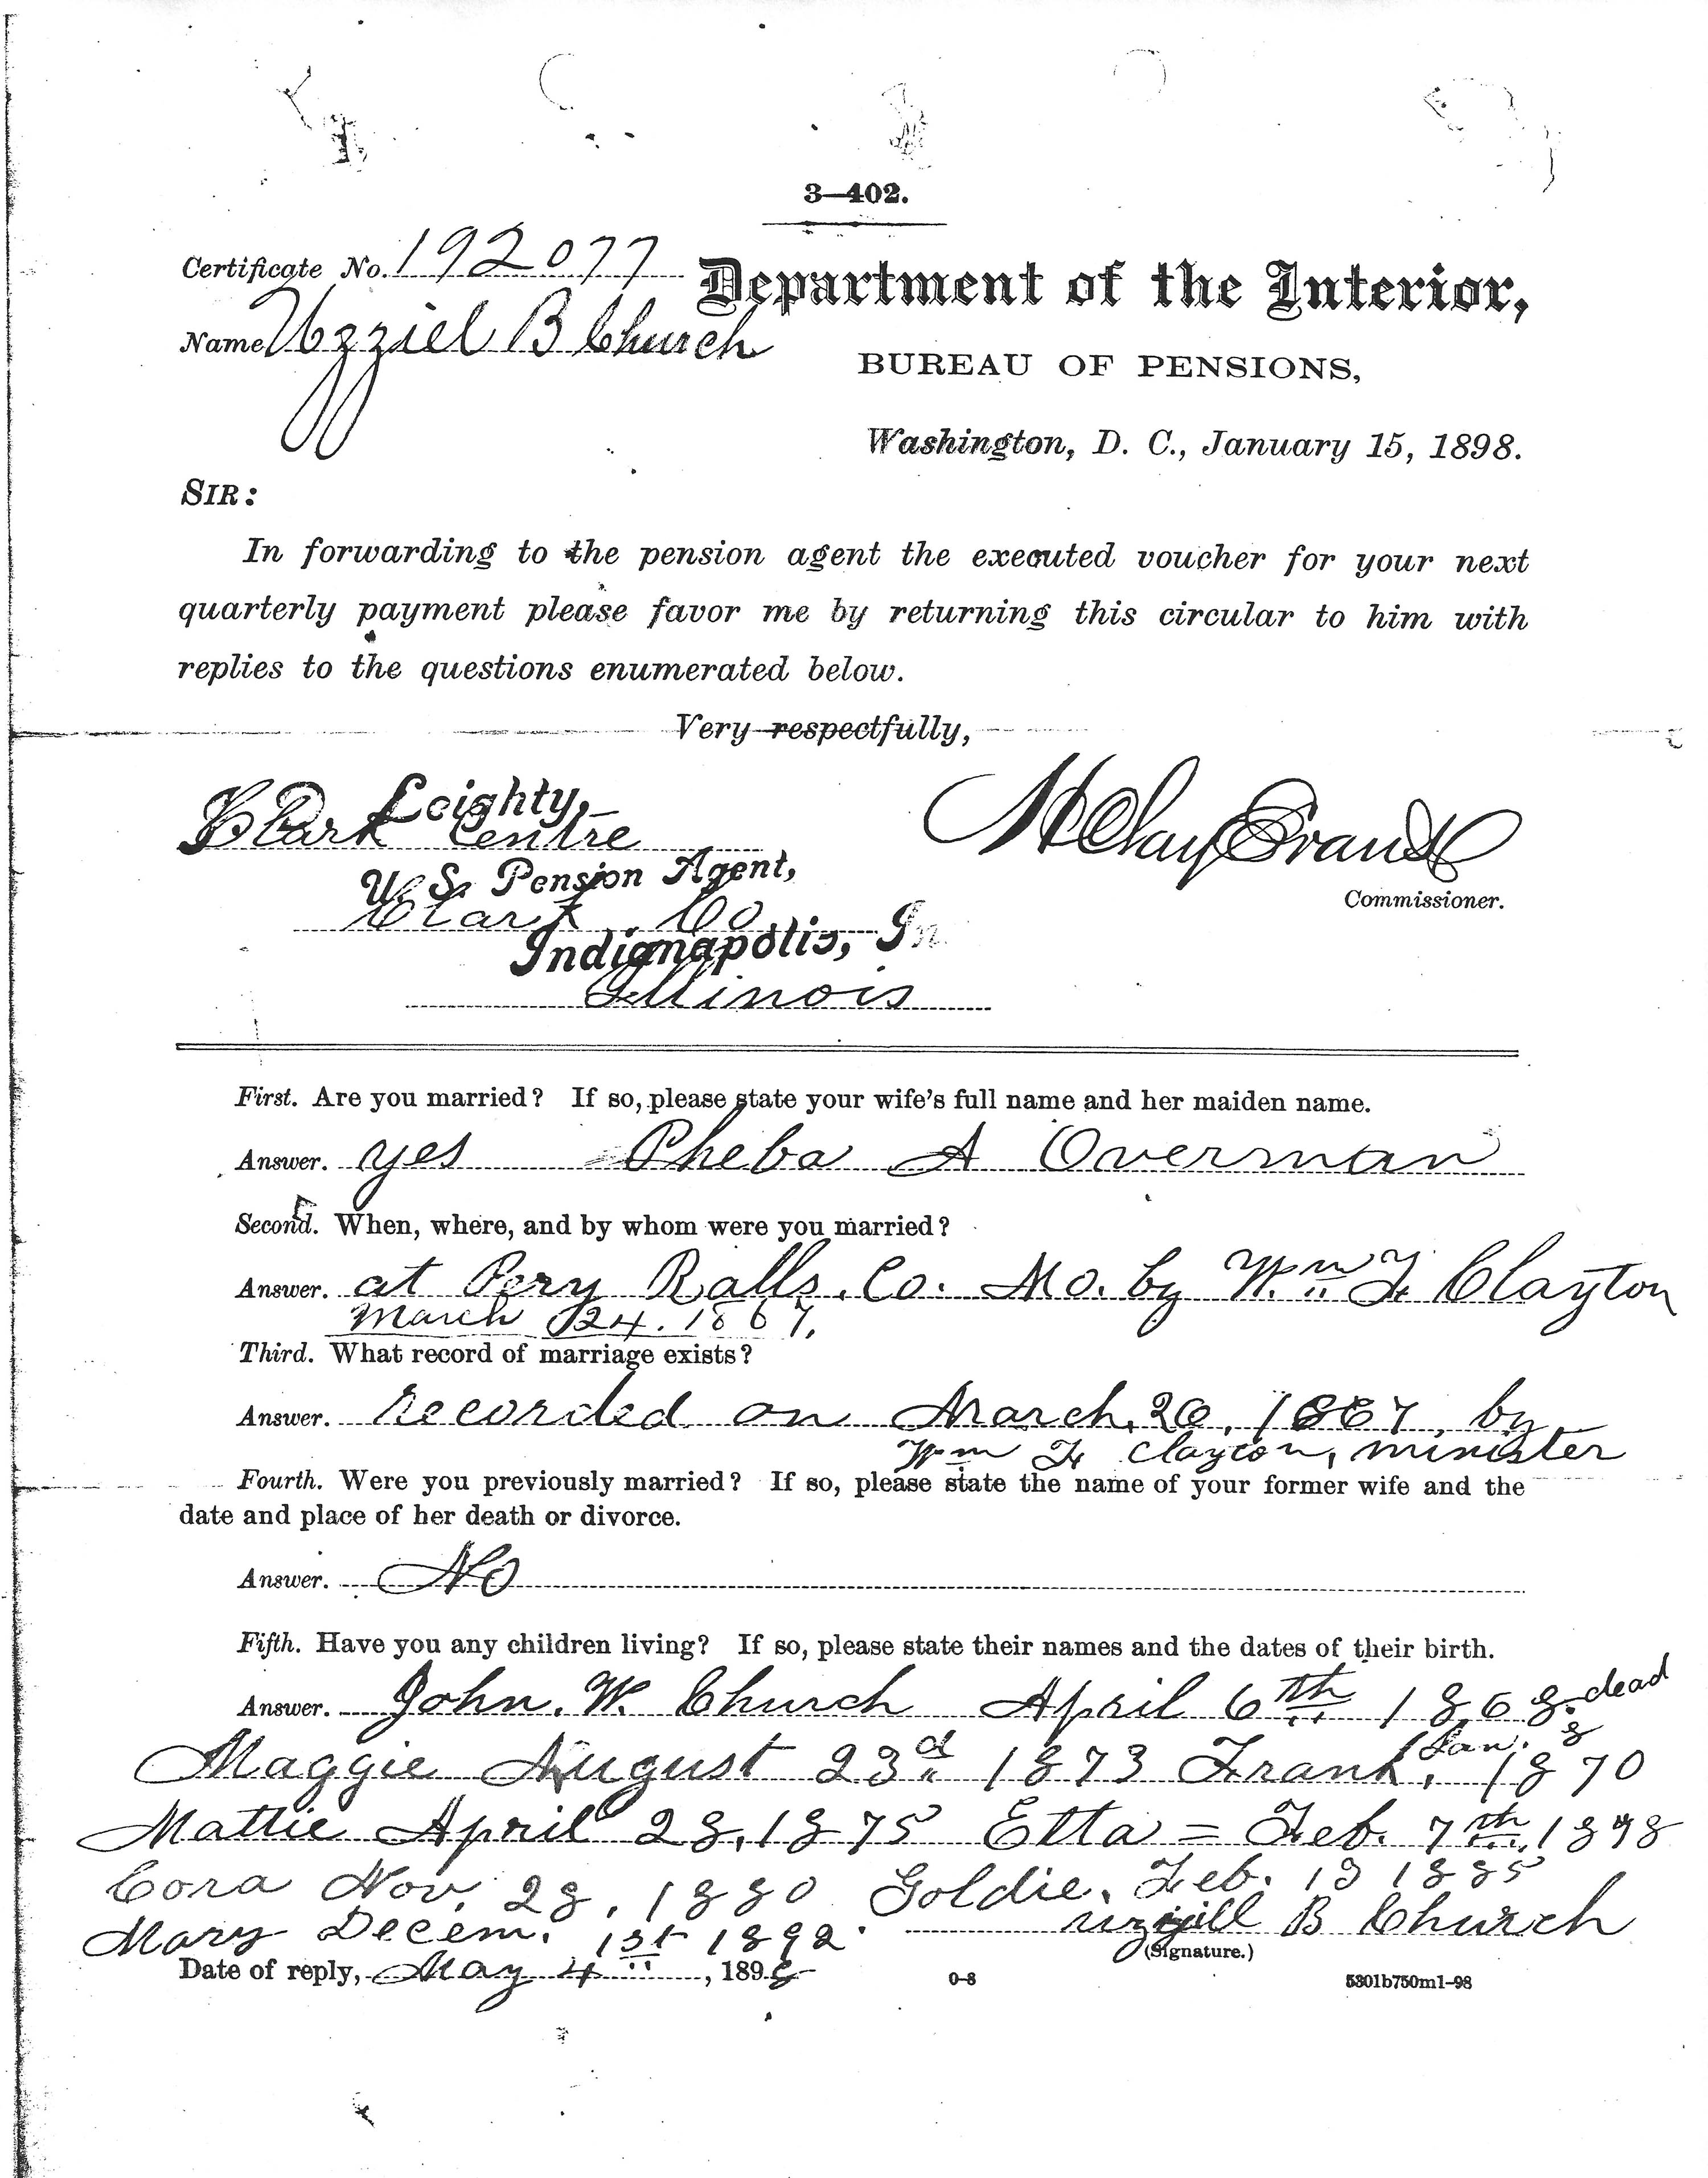 3—402.
Certificate No. 192077
Department of the Interior,
Name Uzziel B Church
BUREAU OF PENSIONS,
Washington, D. C., January 15, 1898.
SIR:
In forwarding to the pension agent the executed voucher for your next
quarterly payment please favor me by returning this circular to him with
replies to the questions enumerated below.
Very respectfully,
Leighty,
Clark Centre
U. S. Pension Agent,
Clark Co
Indianapolis, In
Illinois
H Clay Evans
Commissioner.
First. Are you married? If so, please state your wife's full name and her maiden name.
Answer. yes Pheba A Overman
Second. When, where, and by whom were you married?
Answer. at Pery Ralls. Co. Mo. by Wm F Clayton
March 24. 1867.
Third. What record of marriage exists?
Answer. recorded on March 26, 1867, by
Wm F Clayton, minister
Fourth. Were you previously married? If so, please state the name of your former wife and the
date and place of her death or divorce.
Answer. No
Fifth. Have you any children living? If so, please state their names and the dates of their birth.
Answer. John. W. Church April 6th 1868. dead
Maggie August 23d 1873 Frank, Jan. 8 1870
Mattie April 28, 1875 Etta = Feb. 7th 1878
Cora Nov. 28, 1880 Goldie. Feb. 13 1885
Mary Decem. 1st 1892.
uzzill B Church
(Signature.)
Date of reply, May 4, 1898
0-8
5301b750m1-98